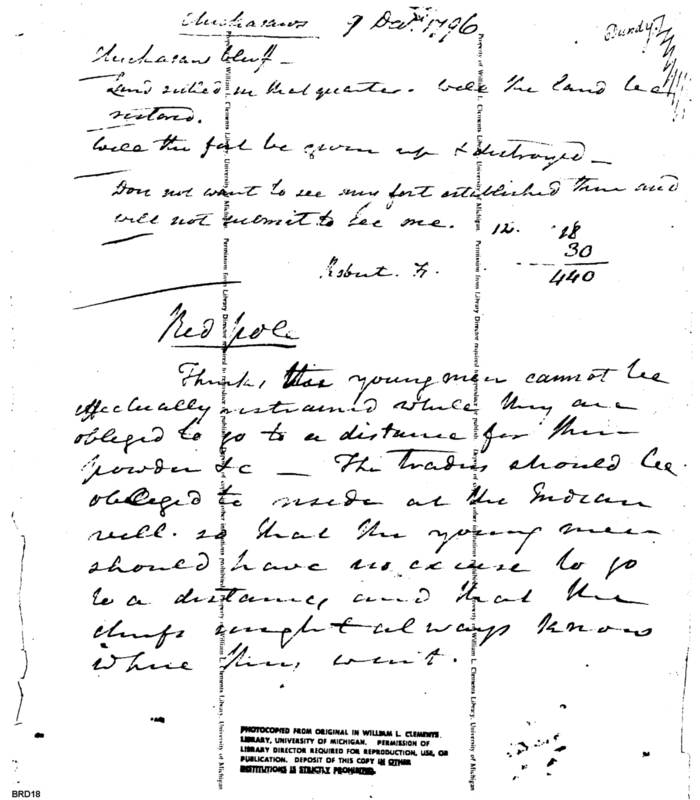 Chickasaws 9 Decr. 1796
Bundy
Chickasaw bluff -
Land settled in that quarter. Will the land be
restored.
Will the fort be given up & destroyed -
Don not want to see any fort established there and
will not submit to see one. 12. 18
30
440
Robert. F.
Red pole
Thinks, the young men cannot be
effectually restrained while they are
obliged to go to a distance for their
powder &c - The Traders should be
obliged to reside at the Indian
vill. so that the young men
should have no excuse to go
to a distance, and that the
chiefs might always know
where they went.
Property of William L. Clements Library, University of Michigan. Permission from Library Director required to reproduce or publish. Deposit of copy in other institutions prohibited.
Property of William L. Clements Library, University of Michigan. Permission from Library Director required to reproduce or publish. Deposit of copy in other institutions prohibited.
PHOTOCOPIED FROM ORIGINAL IN WILLIAM L. CLEMENTS
LIBRARY, UNIVERSITY OF MICHIGAN. PERMISSION OF
LIBRARY DIRECTOR REQUIRED FOR REPRODUCTION, USE, OR
PUBLICATION. DEPOSIT OF THIS COPY IN OTHER
INSTITUTIONS IS STRICTLY PROHIBITED.
BRD18